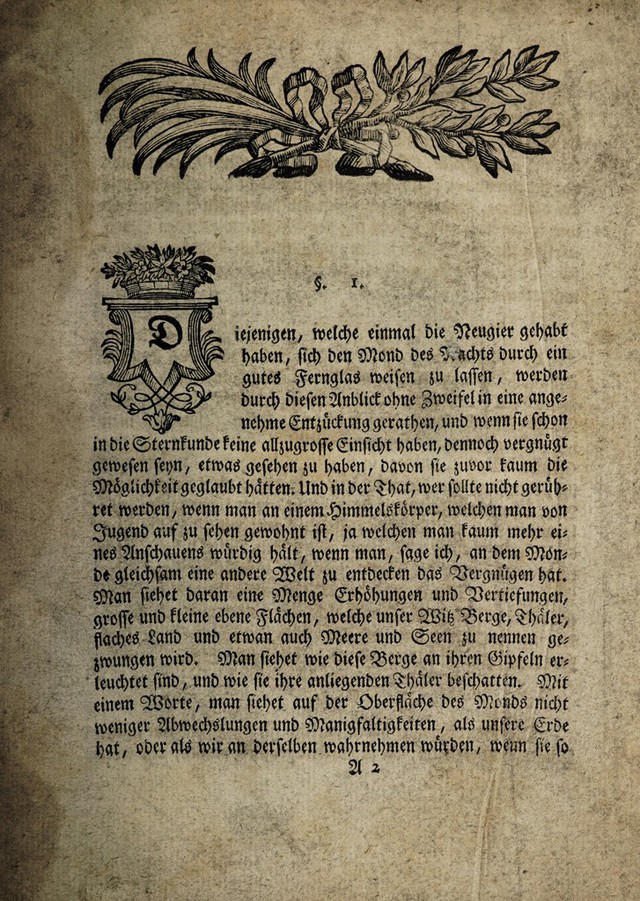 §. 1.
Diejenigen, welche einmal die Neugier gehabt
haben, sich den Mond des Nachts durch ein
gutes Fernglas weisen zu lassen, werden
durch diesen Anblick ohne Zweifel in eine ange-
nehme Entzückung gerathen, und wenn sie schon
in die Sternkunde keine allzugrosse Einsicht haben, dennoch vergnügt
gewesen seyn, etwas gesehen zu haben, davon sie zuvor kaum die
Möglichkeit geglaubt hätten. Und in der That, wer sollte nicht gerüh-
ret werden, wenn man an einem Himmelskörper, welchen man von
Jugend auf zu sehen gewohnt ist, ja welchen man kaum mehr ei-
nes Anschauens würdig hält, wenn man, sage ich, an dem Mon-
de gleichsam eine andere Welt zu entdecken das Vergnügen hat.
Man siehet daran eine Menge Erhöhungen und Vertiefungen,
grosse und kleine ebene Flächen, welche unser Witz Berge, Thäler,
flaches Land und etwan auch Meere und Seen zu nennen ge-
zwungen wird. Man siehet wie diese Berge an ihren Gipfeln er-
leuchtet sind, und wie sie ihre anliegenden Thäler beschatten. Mit
einem Worte, man siehet auf der Oberfläche des Monds nicht
weniger Abwechslungen und Manigfaltigkeiten, als unsere Erde
hat, oder als wir an derselben wahrnehmen würden, wenn sie so
A 2